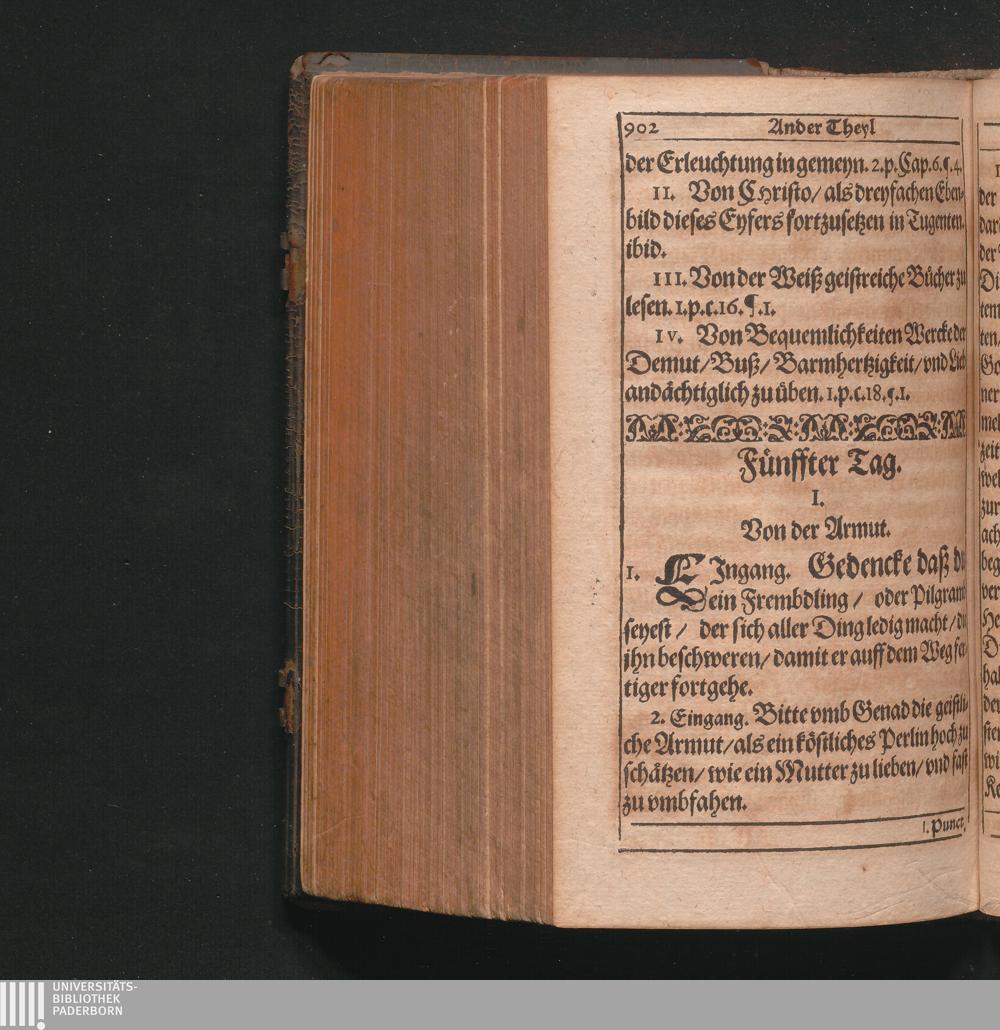 902 Ander Theyl
der Erleuchtung in gemeyn. 2.p. Cap. 6. ¶. 4.
II. Von CHristo/ als dreyfachen Eben-
bild dieses Eyfers fortzusetzen in Tugenten.
ibid.
III. Von der Weiß geistreiche Bücher zu
lesen. 1.p.c.16. ¶.1.
IV. Von Bequemlichkeiten Wercke der
Demut/ Buß/ Barmhertzigkeit/ vnd Lieb
andächtiglich zu üben. 1.p.c.18. ¶.1.
Fünffter Tag.
I.
Von der Armut.
1. EIngang. Gedencke daß du
ein Frembdling / oder Pilgram
seyest / der sich aller Ding ledig macht / die
jhn beschweren/ damit er auff dem Weg fer-
tiger fortgehe.
2. Eingang. Bitte vmb Genad die geistli-
che Armut/ als ein köstliches Perlin hoch zu
schätzen/ wie ein Mutter zu lieben/ vnd fast
zu vmbfahen.
1. Punct.
UNIVERSITÄTS-
BIBLIOTHEK
PADERBORN